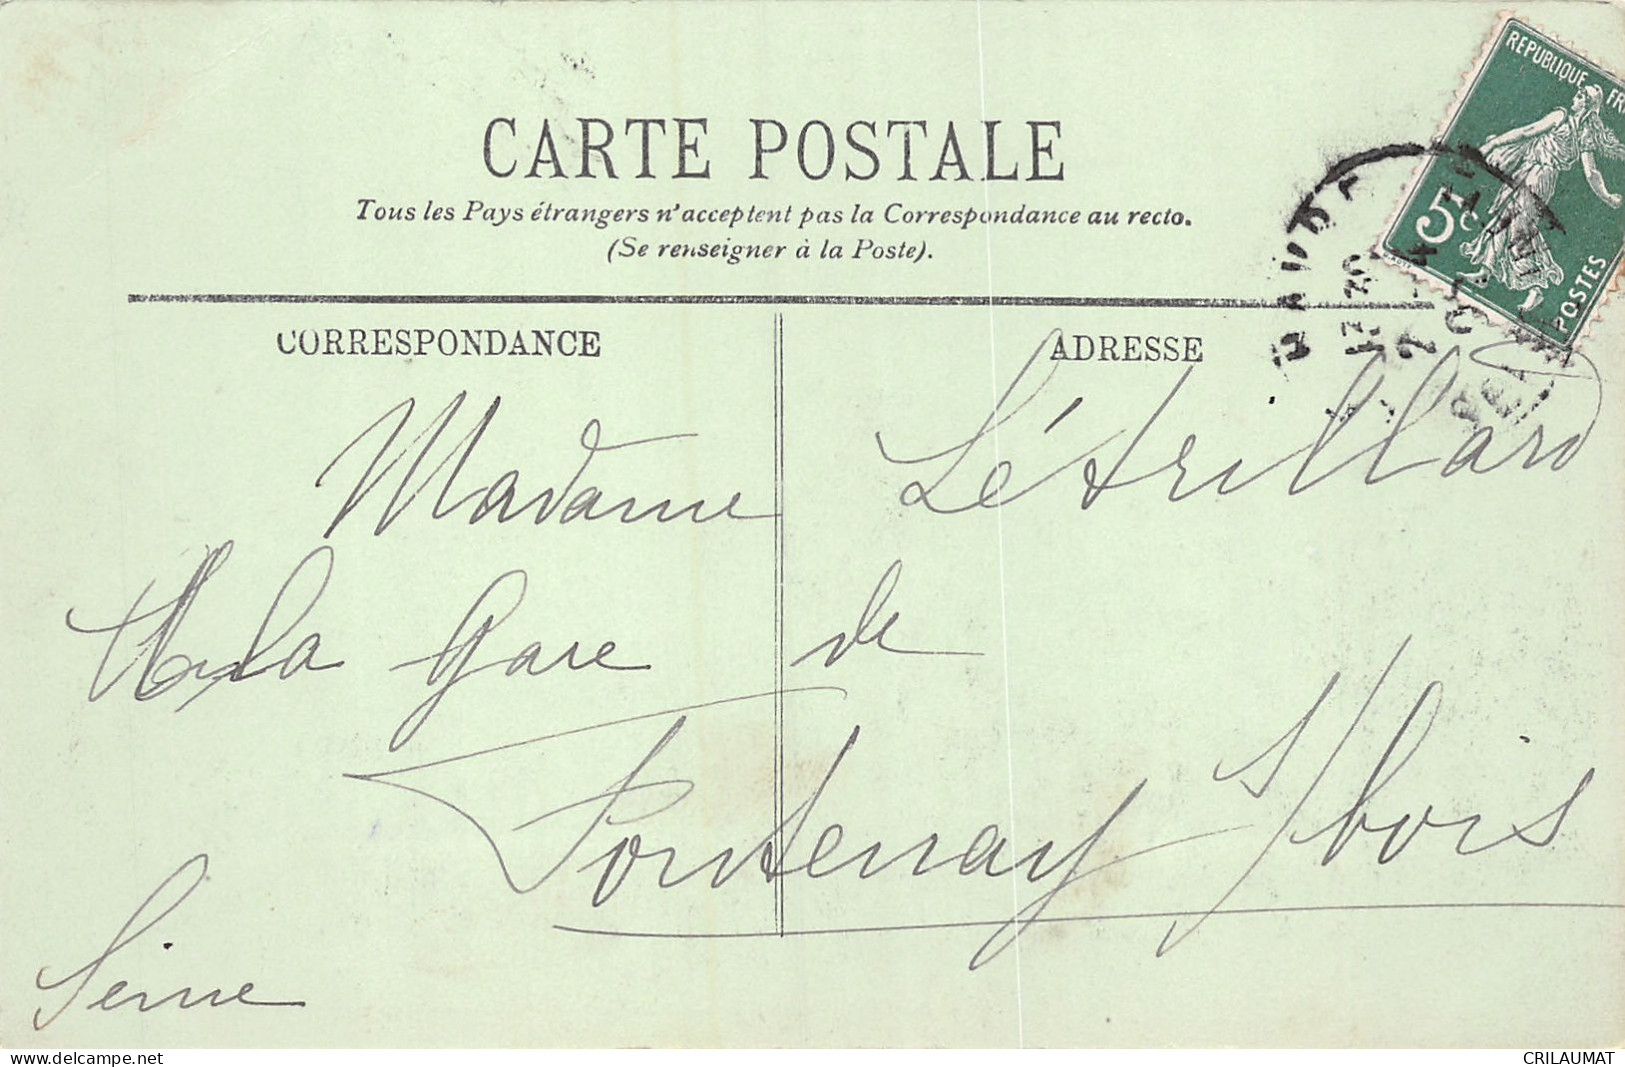 CARTE POSTALE
Tous les Pays étrangers n'acceptent pas la Correspondance au recto.
(Se renseigner à la Poste).
REPUBLIQUE FR
5c
POSTES
CORRESPONDANCE
ADRESSE
17 30
7 - 4
Madame Létrillard
la Gare de
Fontenay s/bois
Seine
www.delcampe.net
CRILAUMAT